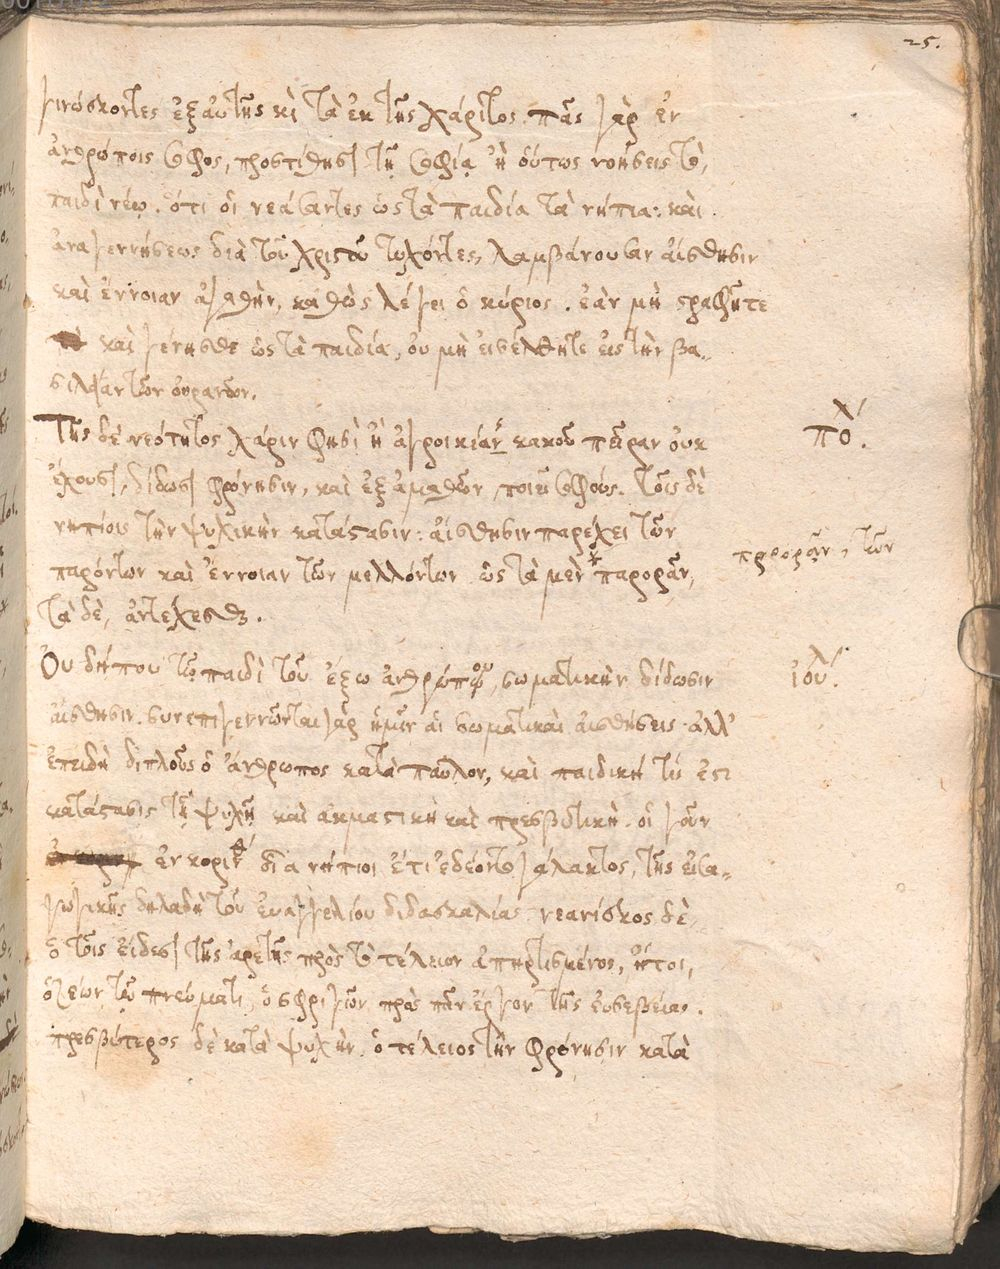 25.
γινώσκοντες ἐξ αὐτῆς κὶ τὰ ἐκ τῆς χάριτος. πᾶς γὰρ ἐν
ἀνθρώποις σοφὸς, προστίθησι τῇ σοφίᾳ· ἢ οὕτως νοήσεις τὸ,
παιδὶ νέῳ. ὅτι οἱ νεάσαντες ὡς τὰ παιδία τὰ νήπια: καὶ.
ἀναγεννήσεως διὰ τοῦ χριστοῦ τυχόντες, λαμβάνουσιν αἴσθησιν
καὶ ἔννοιαν ἀγαθὴν, καθὼς λέγει ὁ κύριος. ἐὰν μὴ στραφῆτε
καὶ γένησθε ὡς τὰ παιδία, οὐ μὴ εἰσέλθητε εἰς τὴν βα-
σιλείαν τῶν οὐρανῶν.
Τῆς δὲ νεότητος χάριν φησὶ ἢ ἀγροικίαν κακοῦ πεῖραν οὐκ
πολ.
ἔχουσι, δίδωσι φρόνησιν, καὶ ἐξ ἀμαθῶν, ποιεῖ σοφούς. τοῖς δὲ
νηπίοις τὴν ψυχικὴν κατάστασιν: αἴσθησιν παρέχει τῶν
παρόντων καὶ ἔννοιαν τῶν μελλόντων ὡς τὰ μὲν * παρορᾶν,
προορᾶν, τῶν
τὰ δὲ, ἀντέχεσθαι.
Οὐ δήπου τῷ παιδὶ τοῦ ἔξω ἀνθρώπου, σωματικὴν δίδωσιν
ἰουλ.
αἴσθησιν. συνεπιγεννῶνται γὰρ ἡμῖν αἱ σωματικαὶ αἰσθήσεις· ἀλλ'
ἐπειδὴ διπλοῦς ὁ ἄνθρωπος κατὰ παῦλον, καὶ παιδική τίς ἐστι
κατάστασις τῇ ψυχῇ καὶ ἀκμαστικὴ καὶ πρεσβυτική. οἱ γοῦν
ἐν κορίνθῳ διὰ νήπιοι ἔτι ἐδέοντο γάλακτος, τῆς εἰσα-
γωγικῆς δηλαδὴ τοῦ εὐαγγελίου διδασκαλίας· νεανίσκος δὲ,
ὁ τοῖς εἴδεσι τῆς ἀρετῆς πρὸς τὸ τέλειον ἀπηρτισμένος, ἤτοι,
ὁ ζέων τῷ πνεύματι, ὁ σφριγῶν πρὸς πᾶν ἔργον τῆς εὐσεβείας.
πρεσβύτερος δὲ κατὰ ψυχὴν, ὁ τέλειος τὴν φρόνησιν κατὰ